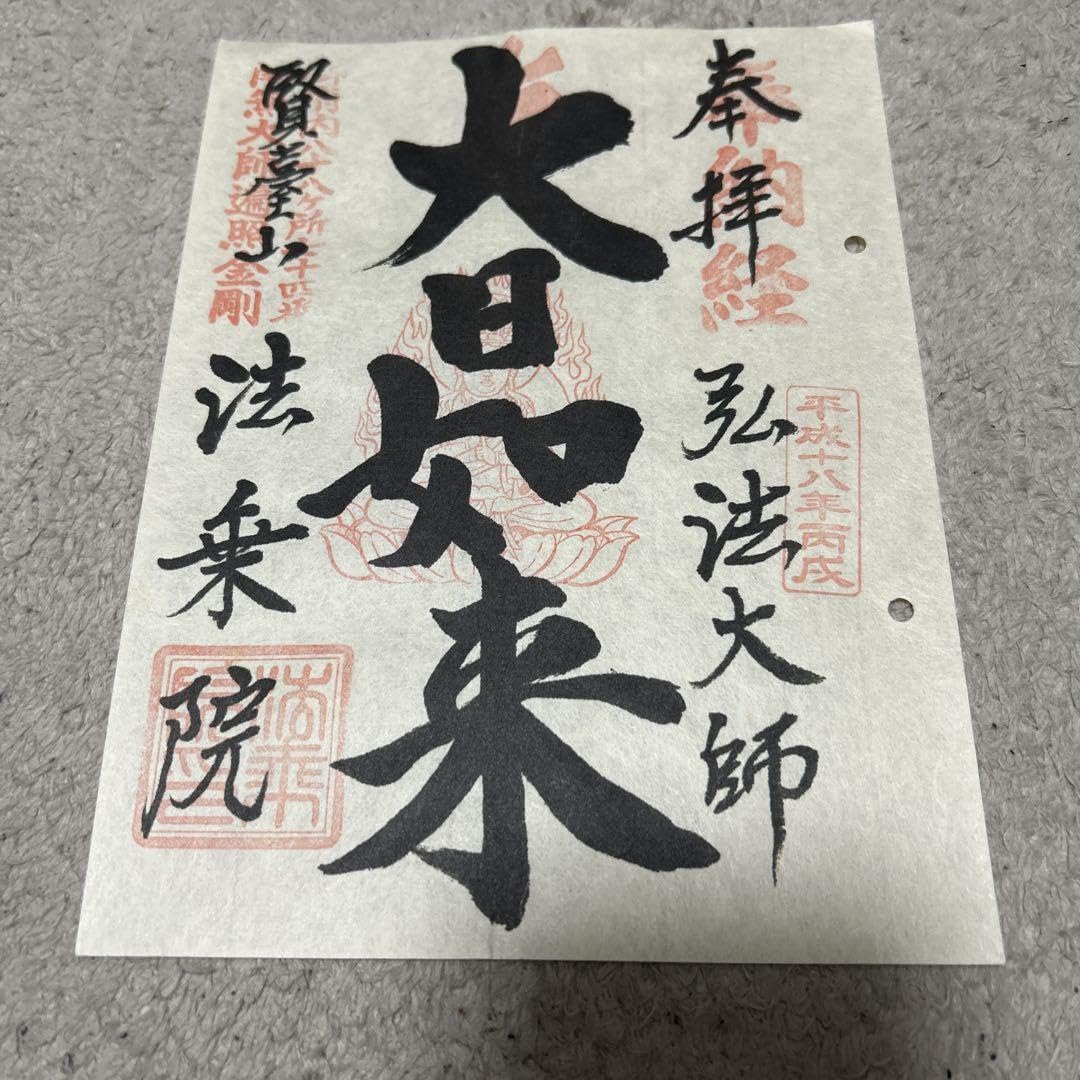 奉納経
奉拝
弘法大師
平成十八年丙戌
大日如来
賢臺山
法乗院
南無大師遍照金剛